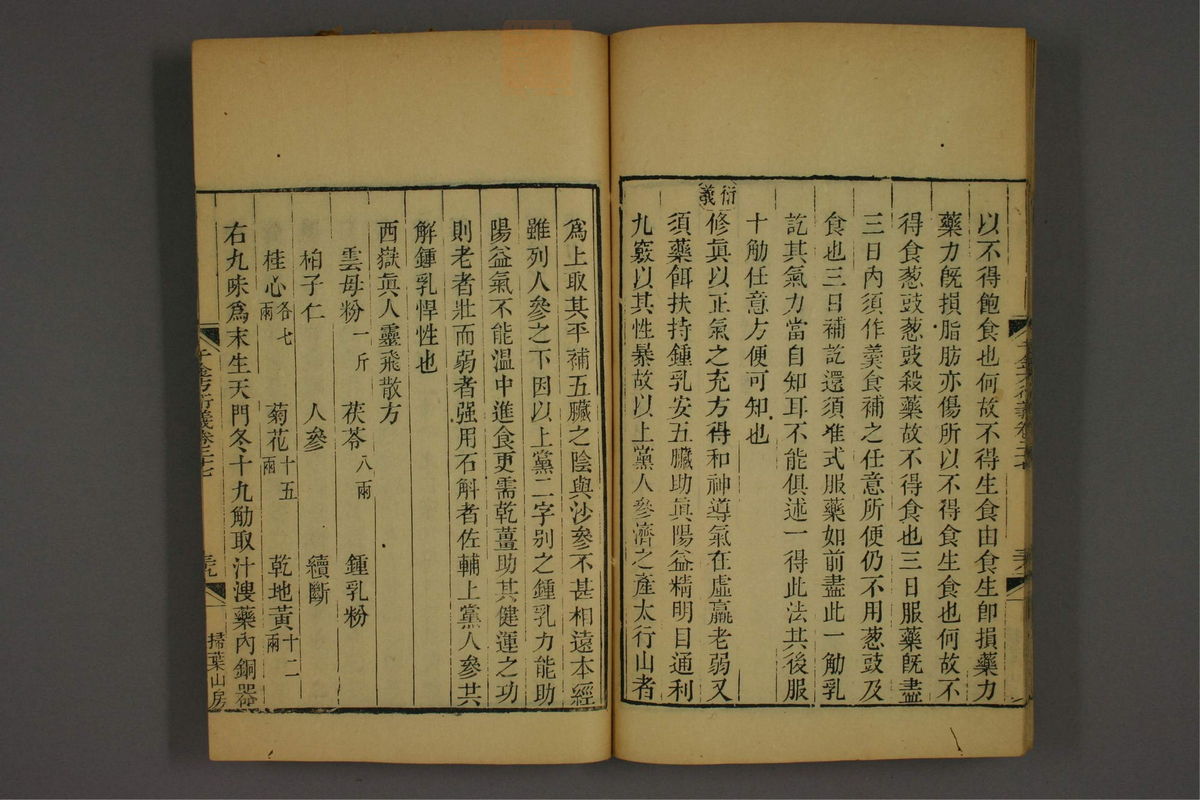 以不得飽食也何故不得生食由食生卽損藥力
藥力旣損脂肪亦傷所以不得食生食也何故不
得食葱豉葱豉殺藥故不得食也三日服藥旣盡
三日內須作羹食補之任意所便仍不用葱豉及
食也三日補訖還須准式服藥如前盡此一觔乳
訖其氣力當自知耳不能俱述一得此法其後服
十觔任意方便可知也
衍義
修眞以正氣之充方得和神導氣在虛羸老弱又
須藥餌扶持鍾乳安五臟助眞陽益精明目通利
九竅以其性暴故以上黨人參濟之產太行山者
爲上取其平補五臟之陰與沙參不甚相遠本經
雖列人參之下因以上黨二字別之鍾乳力能助
陽益氣不能溫中進食更需乾薑助其健運之功
則老者壯而弱者强用石斛者佐輔上黨人參共
解鍾乳悍性也
西獄眞人靈飛散方
雲母粉一斤 茯苓八兩 鍾乳粉
柏子仁 人參 續斷
桂心各七兩 菊花十五兩 乾地黃十二兩
右九味爲末生天門冬十九觔取汁溲藥內銅器
千金方衍義卷二十七
掃葉山房